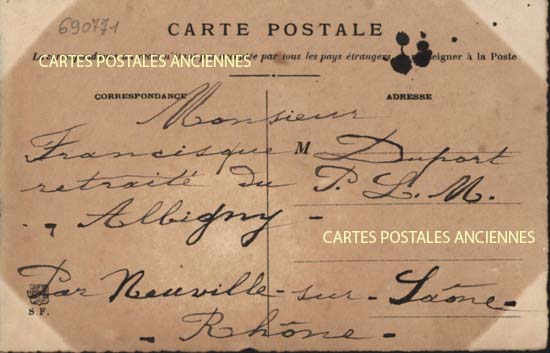 690771
CARTE POSTALE
par tous les pays étrangers
à la Poste
CARTES POSTALES ANCIENNES
CORRESPONDANCE
ADRESSE
Monsieur
Francisque M Duport
retraité du P. L. M.
- Albigny -
CARTES POSTALES ANCIENNES
Par Neuville-sur-Saône-
S F.
- Rhône -